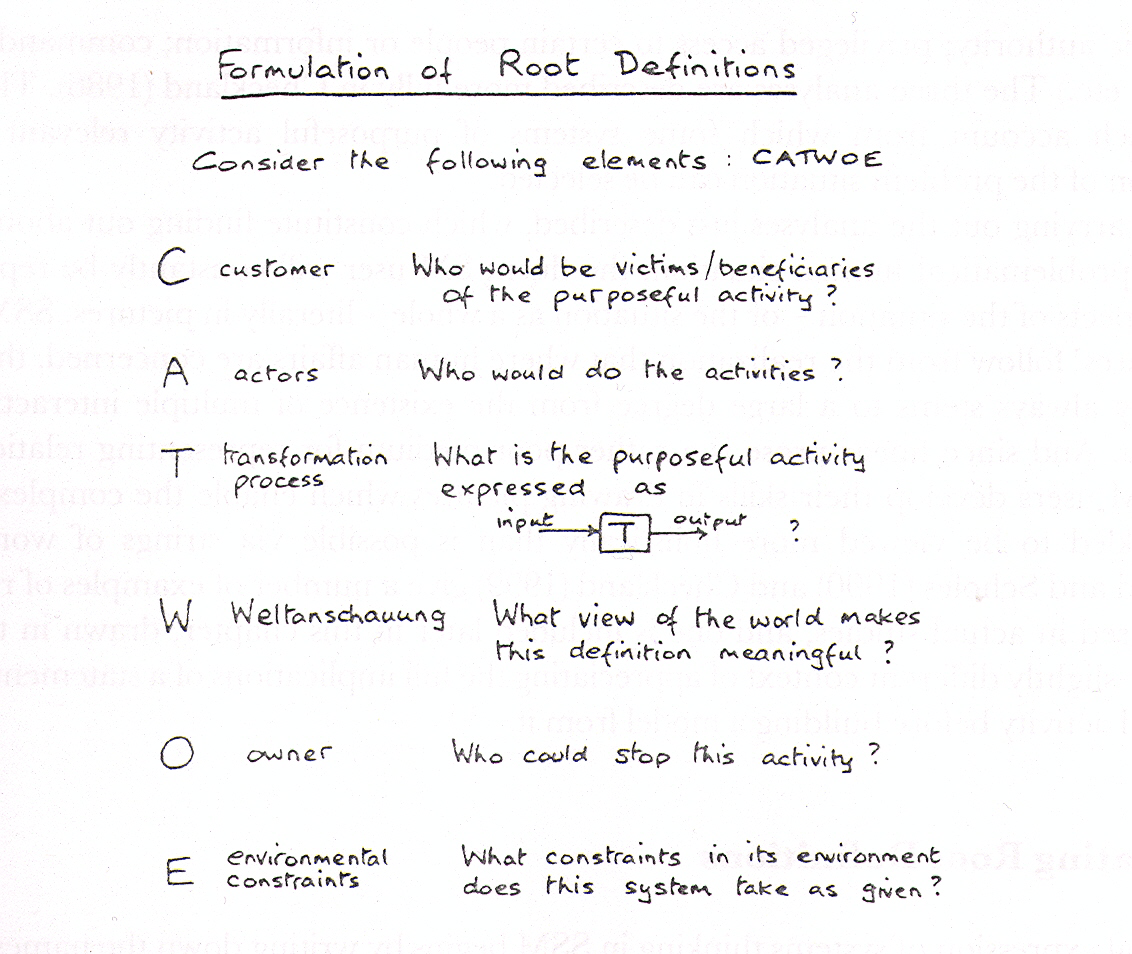 Formulation of Root Definitions
Consider the following elements : CATWOE
C customer Who would be victims/beneficiaries
of the purposeful activity ?
A actors Who would do the activities ?
T transformation What is the purposeful activity
process expressed as
input T output ?
W Weltanschauung What view of the world makes
this definition meaningful ?
O owner Who could stop this activity ?
E environmental What constraints in its environment
constraints does this system take as given ?